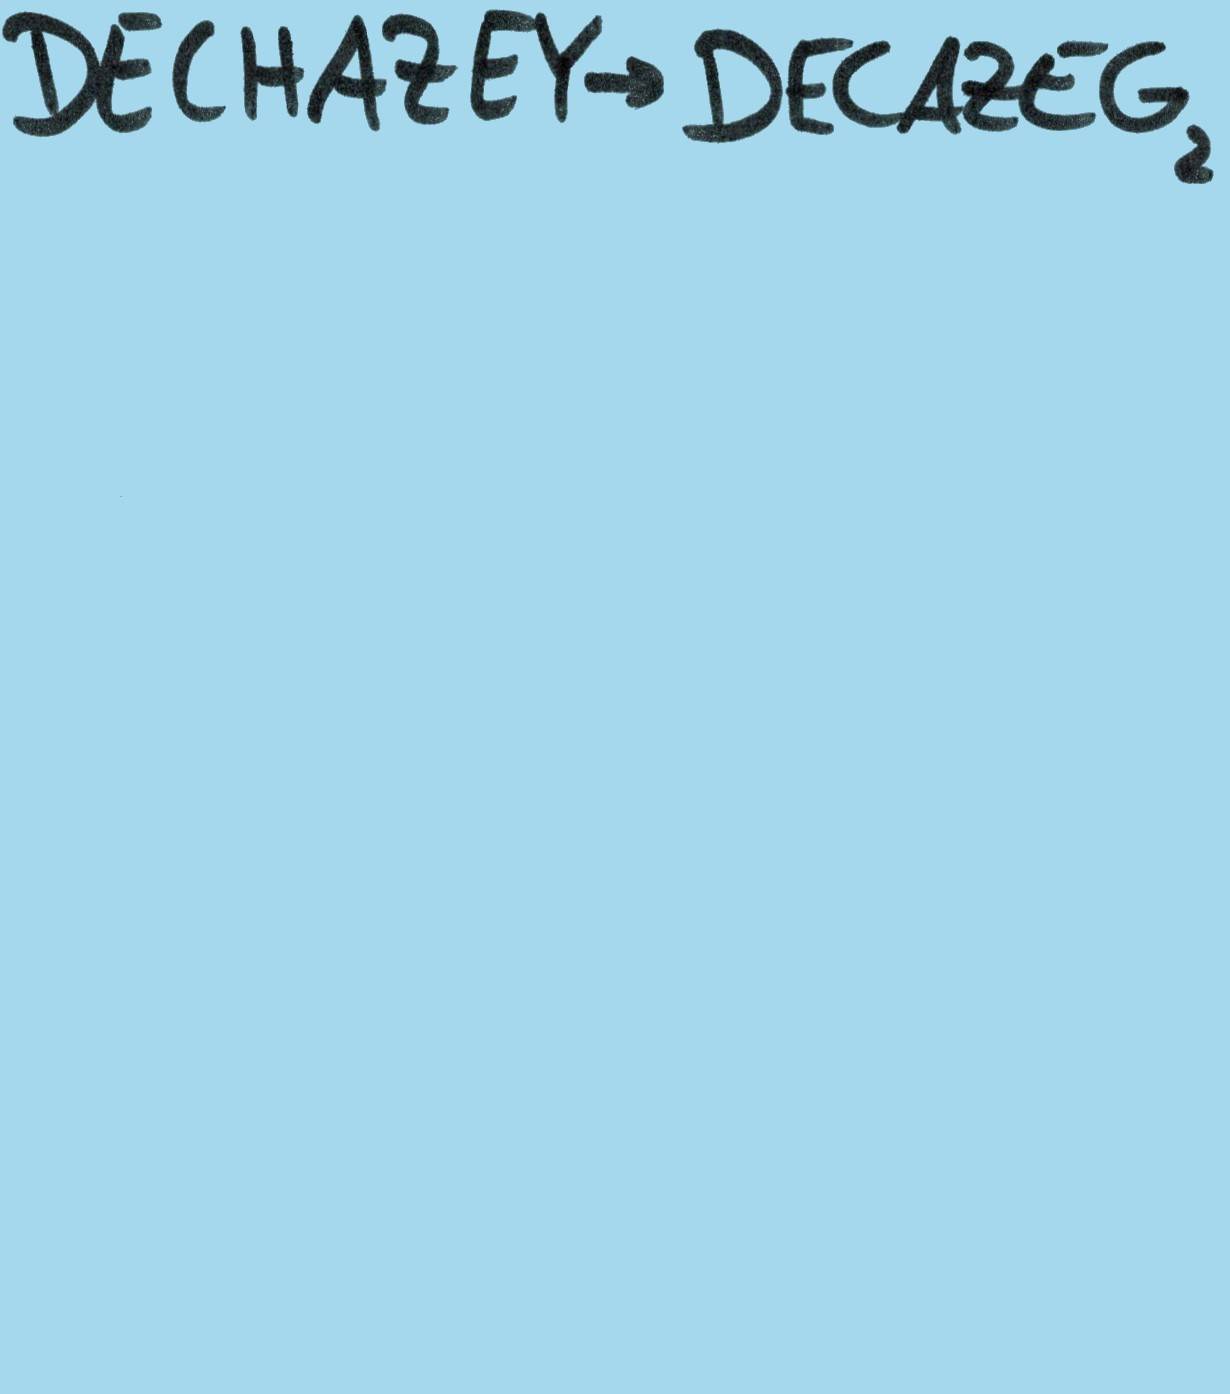 DECHAZEY→DECAZEG₂